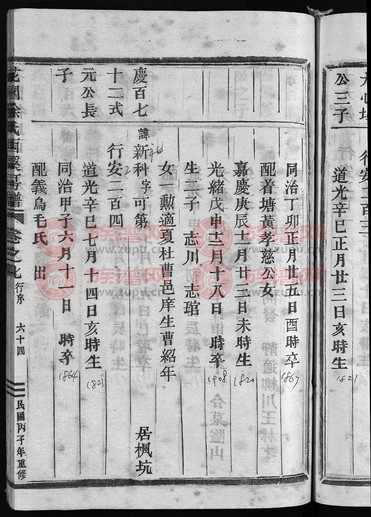 公三子
行安二百三
道光辛巳正月廿三日亥時生
1821
同治丁卯正月廿五日酉時卒
1867
配着塘黃孝慈公女
嘉慶庚辰十二月廿三日未時生
1820
光緒戊申十二月十八日 時卒
1908
生二子 志川 志琯
女一勳適夏杜曹邑庠生曹紹年
慶百七十二式元公長子
諱新科字可第 居楓坑
行安二百四
道光辛巳七月十四日亥時生
1821
同治甲子六月十一日 時卒
1864
配義烏毛氏 出
卷之九 行序 六十四
民國丙子年重修
东普网
www.zupu.cn